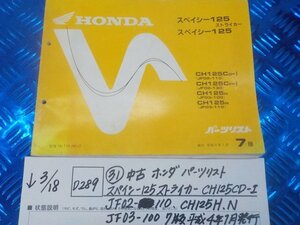 HONDA
スペイシー125
ストライカー
スペイシー125
CH125C
CH125C
CH125
CH125
パーツリスト
7版
↓3/18
D289
㉛中古 ホンダ パーツリスト
スペイシー125ストライカー CH125CD-I
JF02-110 CH125H.N
JF03-100 7版 平成4年1月発行
■状態説明